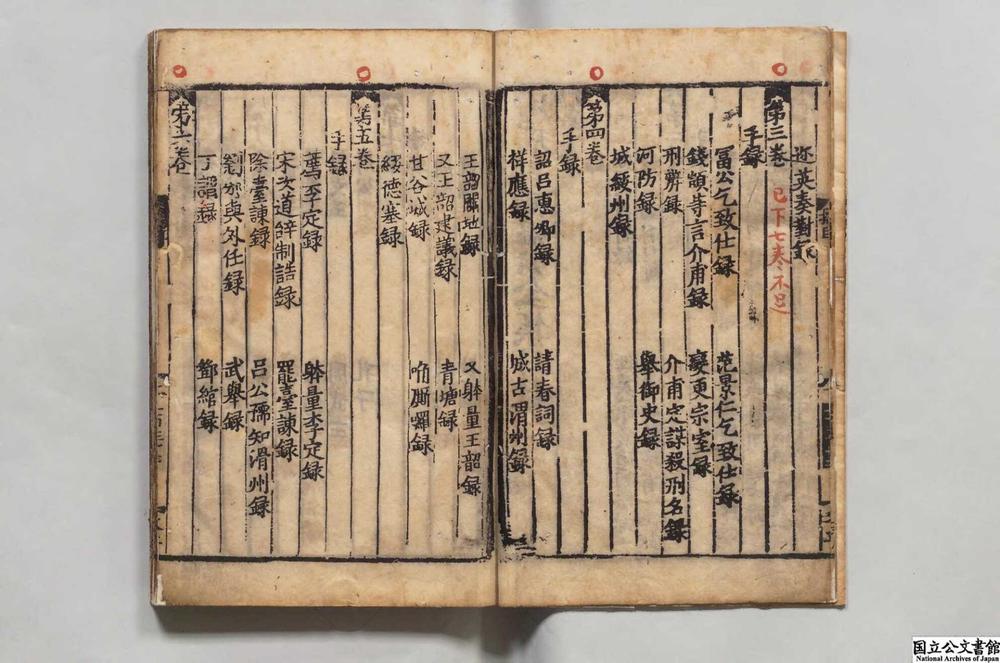 迩英奏對録
第三卷 已下七巻不足
手録
冨公乞致仕録 范景仁乞致仕録
錢顗等言介甫録 變更宗室録
刑獘録 介甫定謀殺刑名録
河防録 舉御史録
城綏州録
第四卷
手録
詔吕惠卿録 請春詞録
祥應録 城古渭州録
王韶闢地録 又躰量王韶録
又王韶建議録 青塘録
甘谷城録 唃厮囉録
綏德塞録
第五卷
手録
薦李定録 躰量李定録
宋次道辝制誥録 罷臺諫録
除臺諫録 吕公孺知滑州録
劉邠與外任録 武舉録
丁詔録 鄧綰録
第六卷
国立公文書館
National Archives of Japan